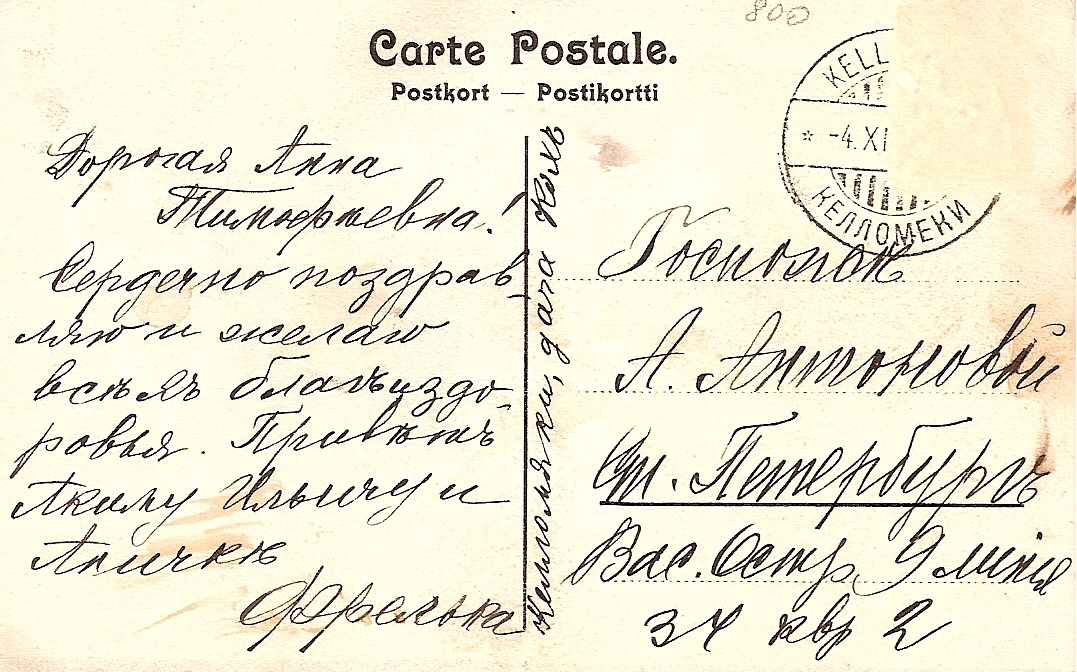 800
Carte Postale.
Postkort — Postikortti
KELL
* -4.XI
КЕЛЛОМЕКИ
Дорогая Анна
Тимофѣевна!
Сердечно поздрав-
ляю и желаю
всѣхъ благъ и здо-
ровья. Привѣтъ
Акиму Ильичу и
Аничкѣ
Келломяки, дача
Госпожѣ
А. Антоновой
Ст. Петербургъ
Вас. Остр. 9 линія
34 квр 2